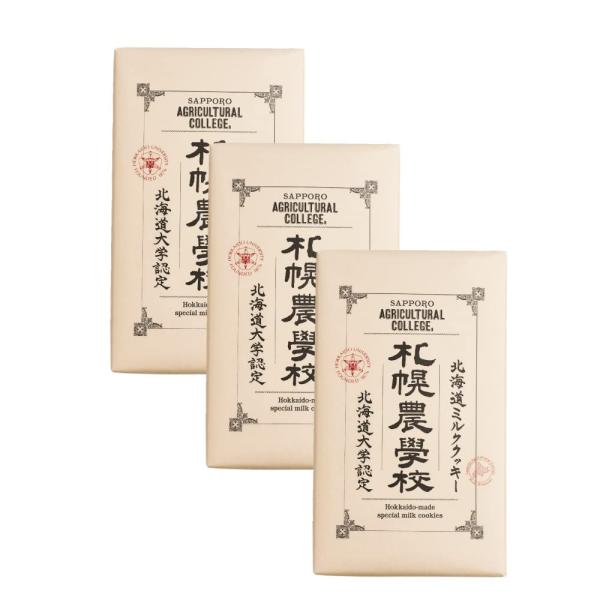 SAPPORO
AGRICULTURAL
COLLEGE
札幌農學校
北海道大学認定
HOKKAIDO UNIVERSITY
FOUNDED 1876
Hokkaido-
special milk
SAPPORO
AGRICULTURAL
COLLEGE
札幌農學校
北海道大学認定
HOKKAIDO UNIVERSITY
FOUNDED 1876
Hokkaido-m
special milk co
SAPPORO
AGRICULTURAL
COLLEGE
北海道ミルククッキー
札幌農學校
北海道大学認定
HOKKAIDO UNIVERSITY
FOUNDED 1876
Hokkaido-made
special milk cookies